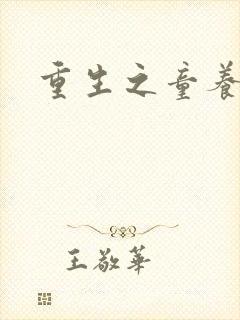 重生之童養
王敬華